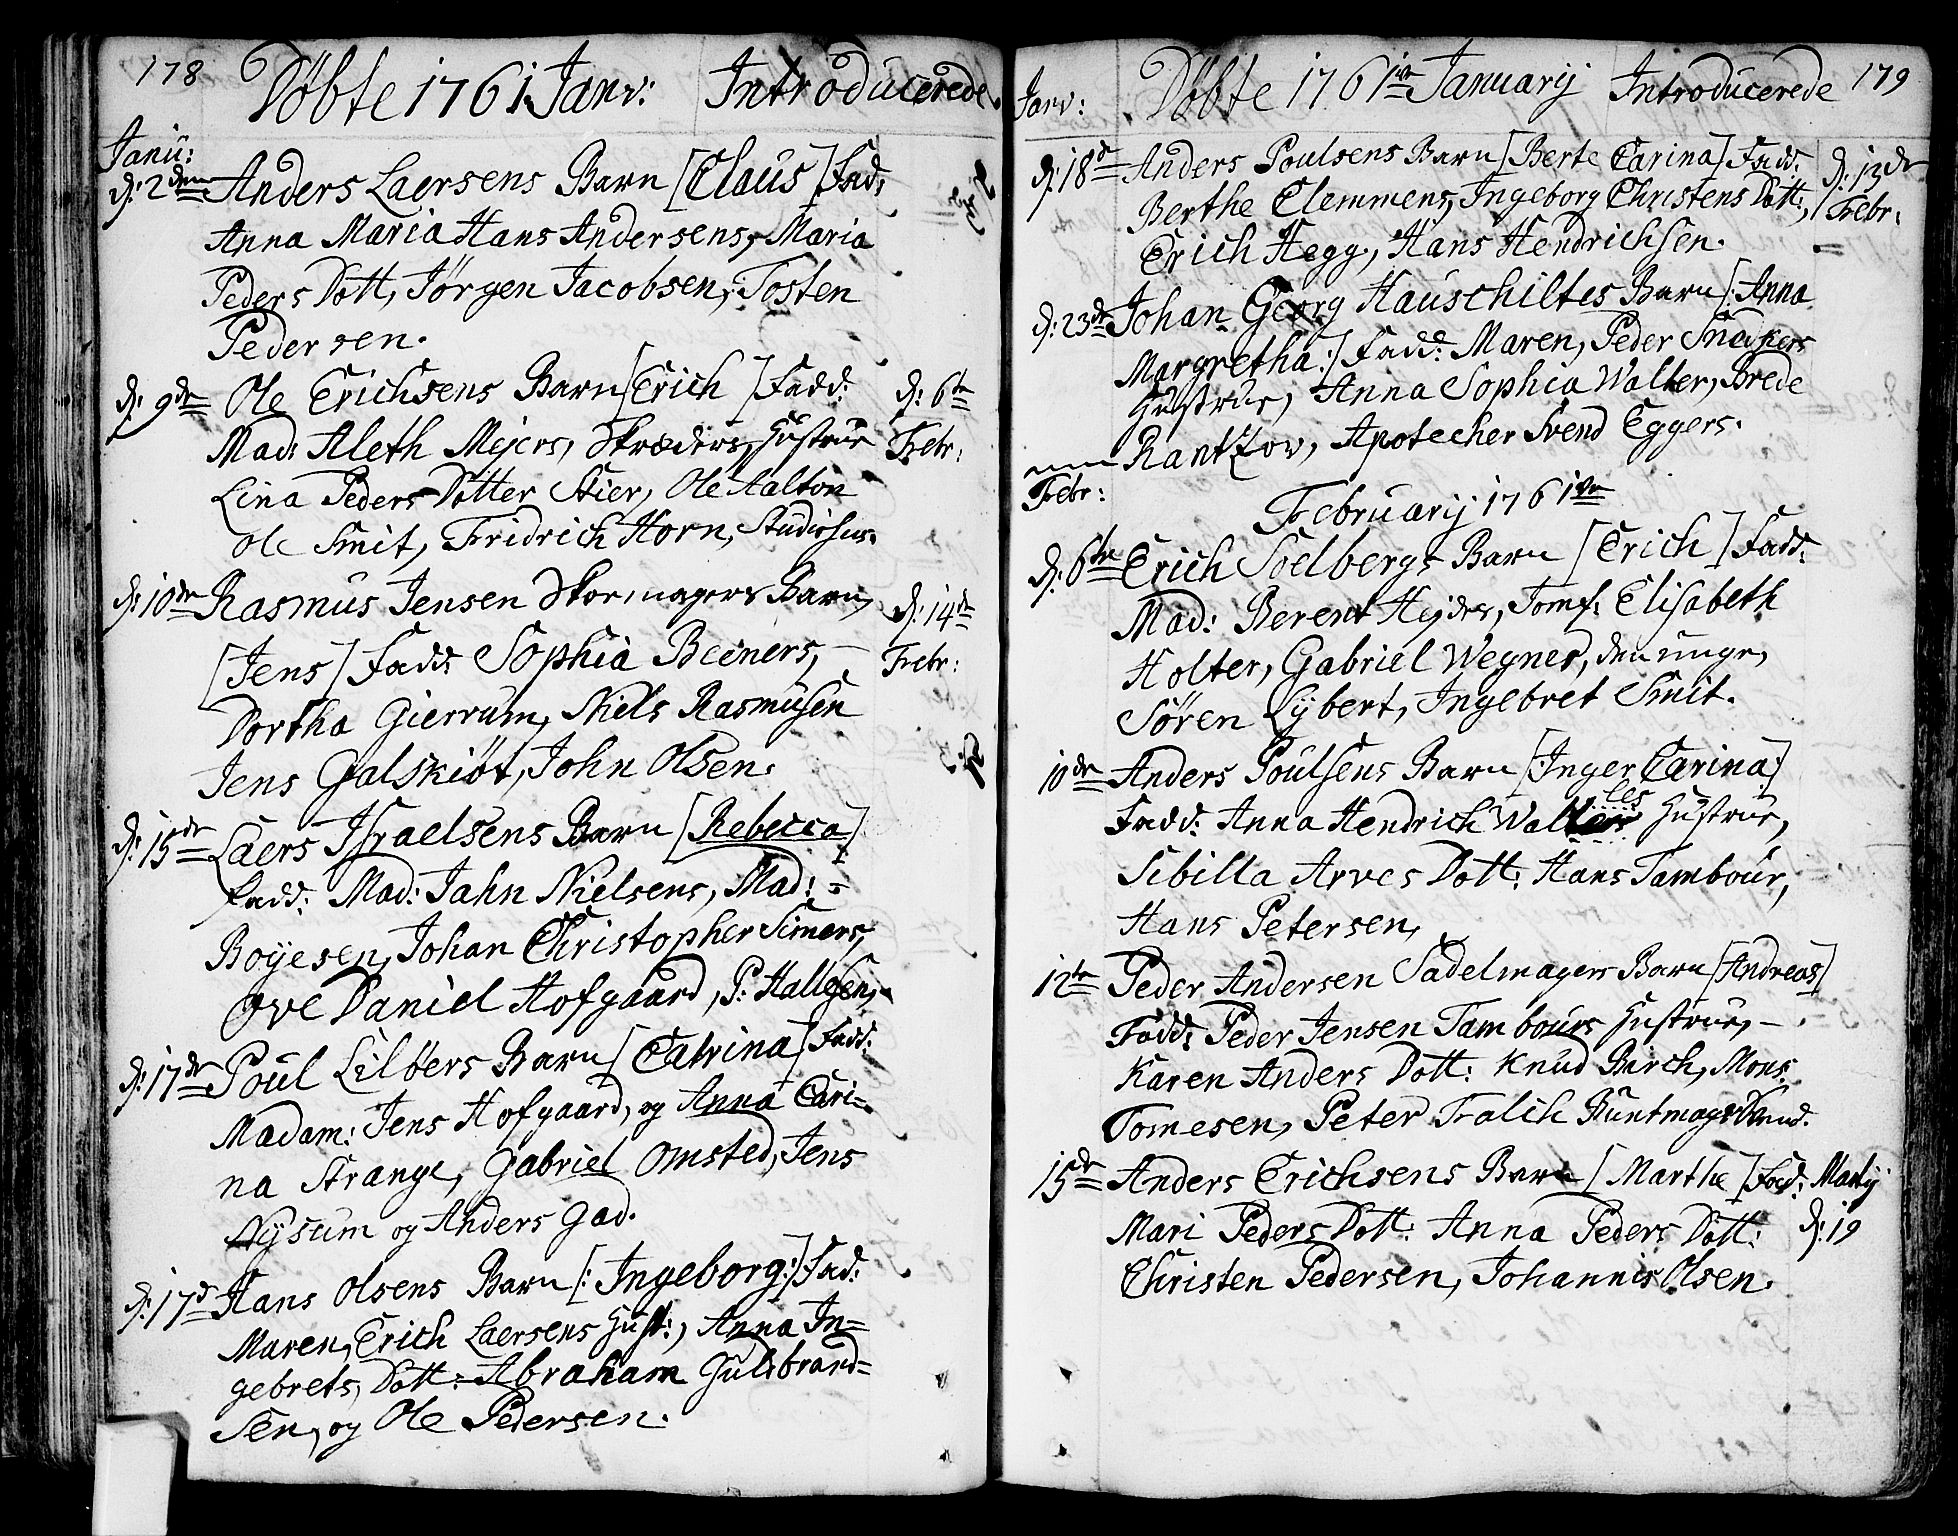 178 Döbte 1761. Janv: Introducerede.
Janu:
d: 2den Anders Laersens Barn [Claus] Fad:
Anna Maria Hans Andersens, Maria
Peders Dott, Jörgen Jacobsen, Tosten
Pedersen.
d: 9de Ole Erichsens Barn [Erich] Fadd: d: 6te
Mad: Aleth Mejers, Skræders Hustrue Febr:
Lina Peders Dotter Stier, Ole Aalton
Ole Smit, Fridrich Horn, Studiosus.
d: 10de Rasmus Jensen Skomagers Barn, d: 14de
[Jens] Fadd: Sophia Beiners, Febr:
Dortha Gierrum, Niels Rasmusen
Jens Galskiöt, John Olsen.
d: 15de Laers Israelsens Barn [Rebecca]
Fadd: Mad: Jahn Nielsens, Mad: =
Boyesen, Johan Christopher Simers,
Ove Daniel Hofgaard, P: Hallesen,
d: 17de Poul Lilbers Barn [Catrina] Fadd:
Madam: Jens Hofgaard, og Anna Cari=
na Strange, Gabriel Omsted, Jens
Nysum og Anders Gad.
d: 17d Hans Olsens Barn [: Ingeborg:] Fad:
Maren, Erich Laersens Hust:, Anna In=
gebrets, Dott: Abraham Guldbrand=
sen, og Ole Pedersen.
Janv: Döbte 1761de Januarij Introducerede 179
d: 18d Anders Poulsens Barn [Berte Carina] Fadd: d: 13de
Berthe Clemmens, Ingeborg Christens Dott:, Febr:
Erich Hegg, Hans Hendrichsen.
d: 23de Johan Georg Hauschiltes Barn [: Anna
Margretha:] Fadd: Maren, Peder Snedkers
Hustrue, Anna Sophia Walter, Brede
Rantzov, Apotecher Svend Eggers.
Febr:
February 1761de
d: 6te Erich Soelbergs Barn [Erich] Fadd:
Mad: Berent Hejdes, Jomf: Elisabeth
Holter, Gabriel Wegner, den unge,
Sören Lybert, Ingebret Smit.
10de Anders Poulsens Barn [: Inger Carina]
Fadd: Anna Hendrich Walles Hustrue,
Sibilla Arves Dott: Hans Tambour,
Hans Petersen,
12te Peder Andersen Sadelmagers Barn [Andreas]
Fadd: Peder Jensen Tambours Hustrue, -
Karen Anders Dott: Knud Birch, Mons
Tomesen, Peter Falch Buntmager Svend.
15de Anders Erichsens Barn [Marthe] Fad: Martij
Mari Peders Dott: Anna Peders Dott: d: 19
Christen Pedersen, Johannis Olsen.